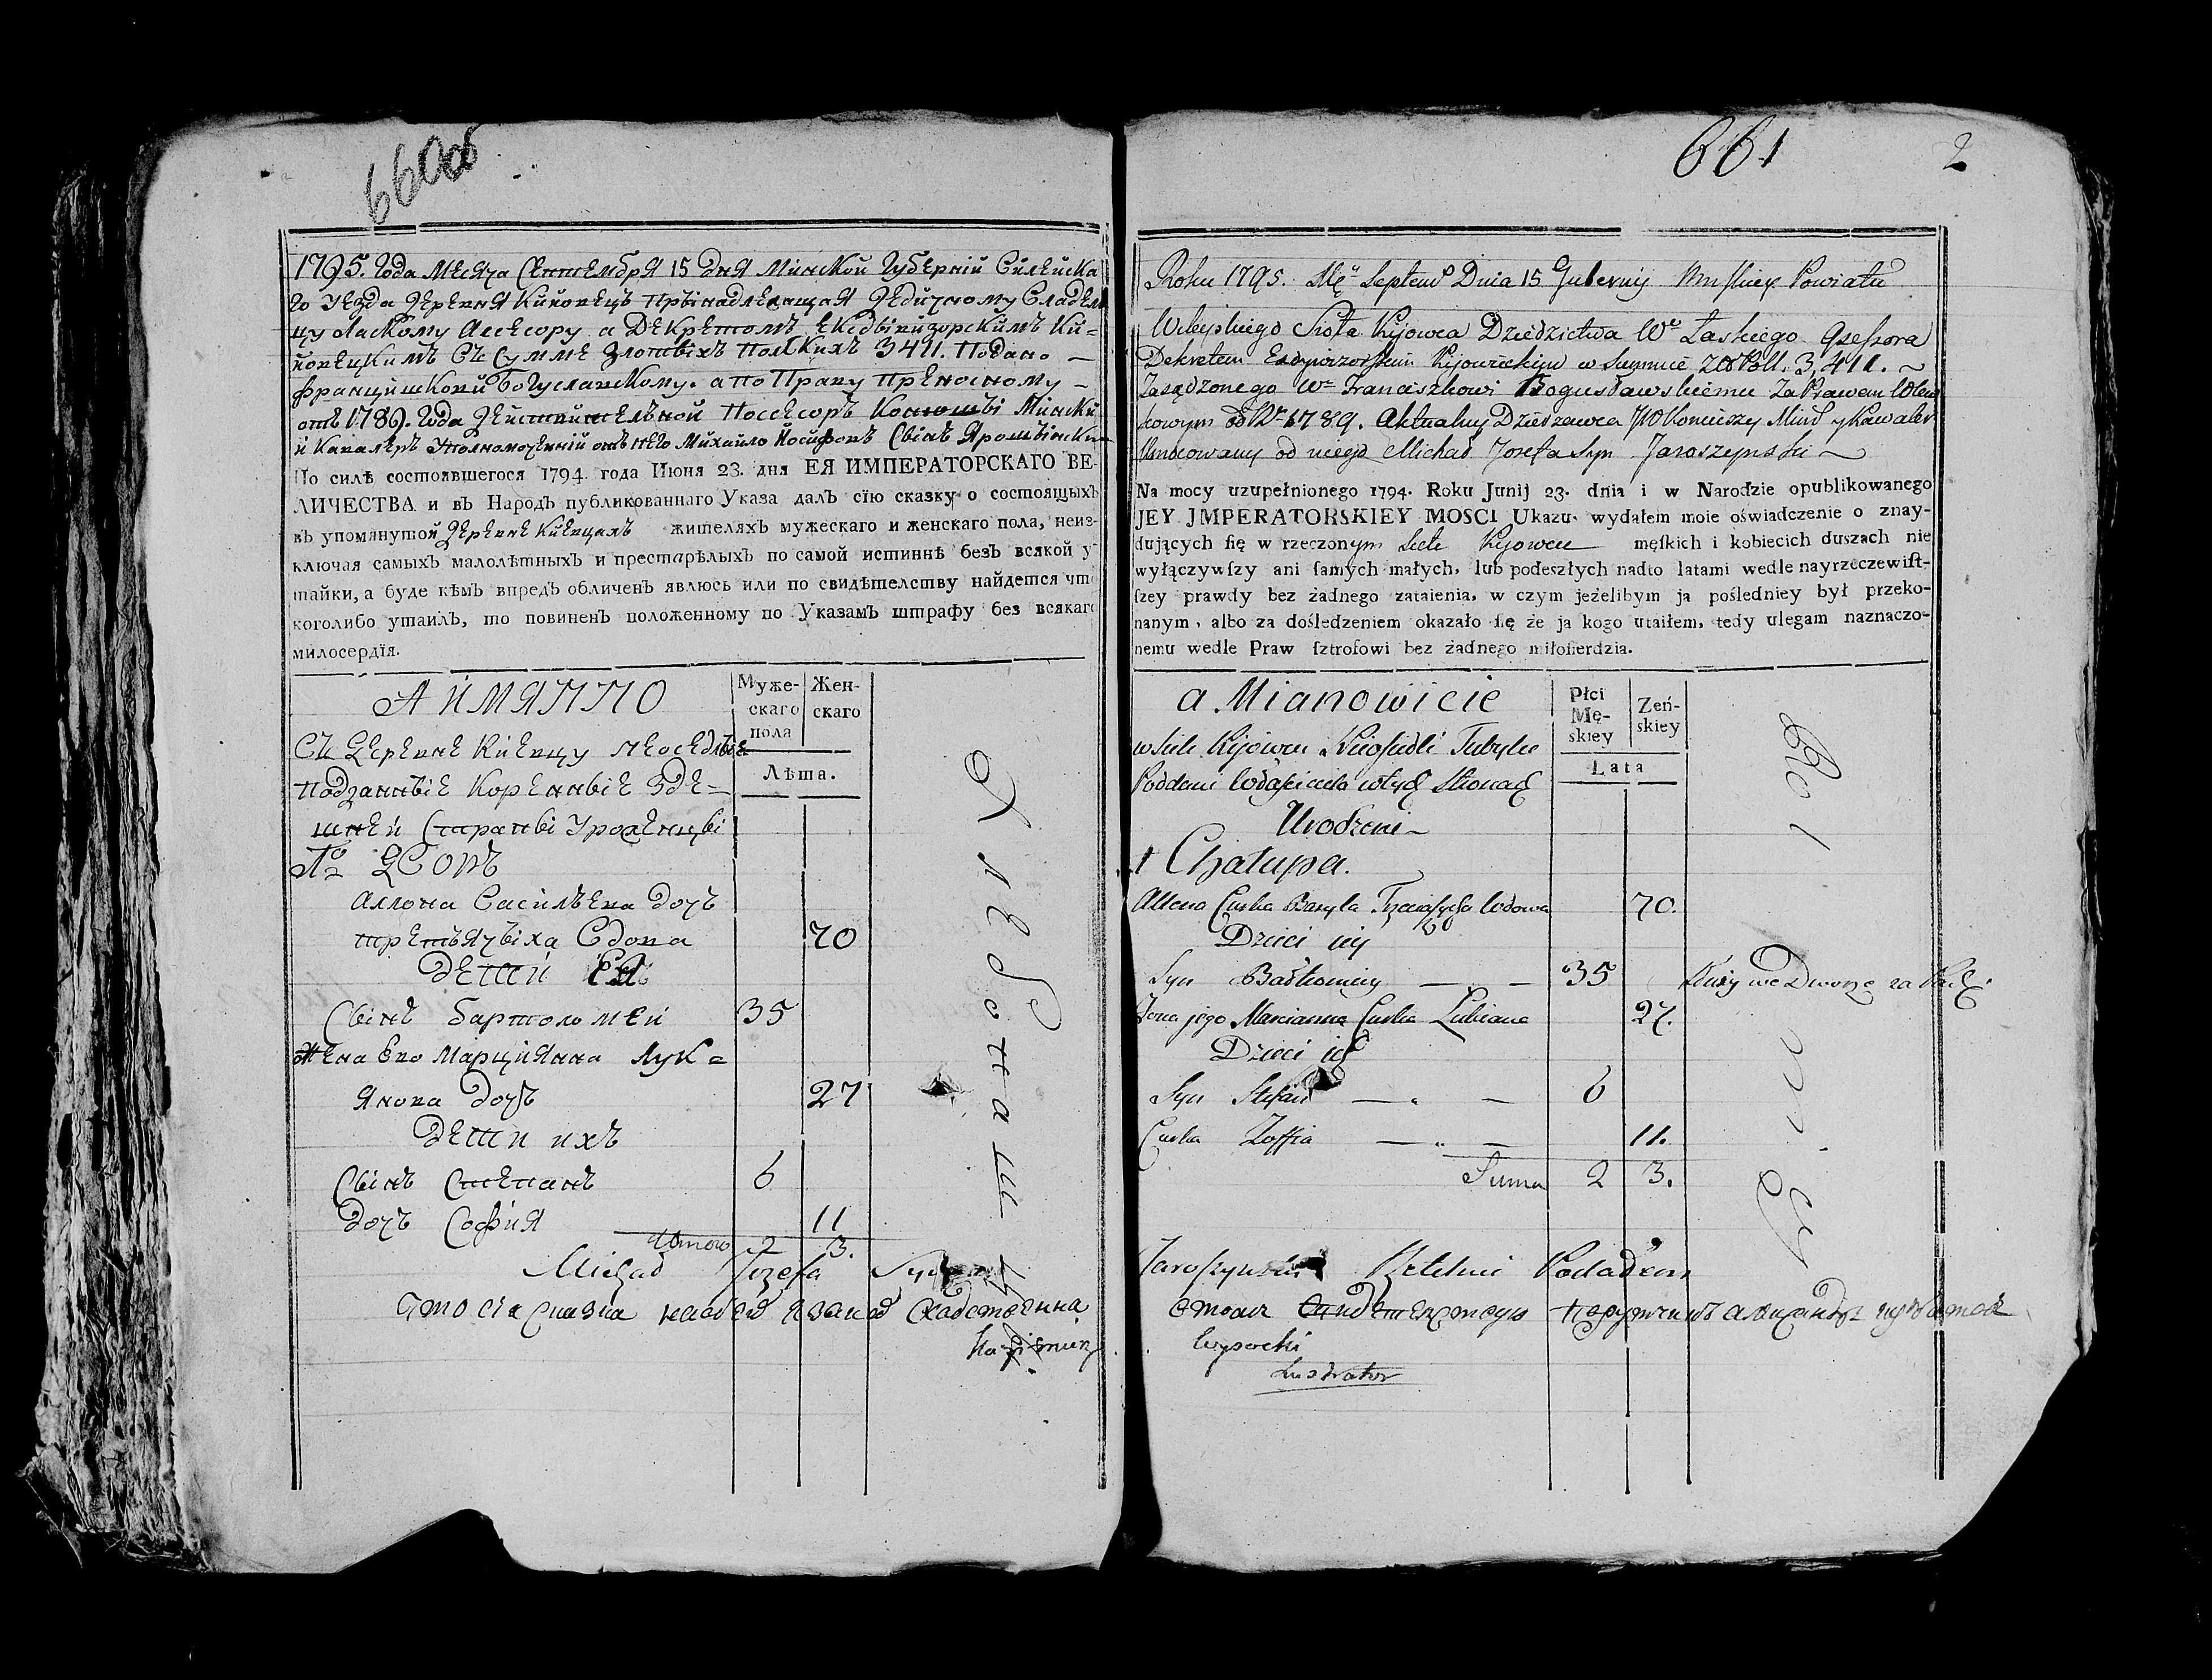 660об
1795. Года Месяца Септембря 15 дня Минской Губерний Вилейска
го уезда деревня Кийовецъ принадлежащая дедичному Владель
цу Ласкому Асесору а Декретомъ Ексдывизорскимъ Кий=
йовецкимъ въ сумме злотыхъ Полскихъ 3411. Подано —
францишкови Богуславскому. а по Праву Преносному —
отъ 1789. Года действительной Посесоръ Конюшы Мински
й Кавалеръ Уполномоченний отъ него Михайло Йосифовъ Сынъ Ярошынски
По силѣ состоявшегося 1794 года Июня 23. дня ЕЯ ИМПЕРАТОРСКАГО ВЕ-
ЛИЧЕСТВА и въ Народъ публикованнаго Указа далъ сїю сказку о состоящыхъ
въ упомянутой деревне Киевцахъ жителяхъ мужескаго и женскаго пола, неиз-
ключая самыхъ малолѣтныхъ и престарѣлыхъ по самой истиннѣ безъ всякой у
тайки, а буде кѣмъ впредъ обличенъ явлюсь или по свидѣтелству найдется что
коголибо утаилъ, то повиненъ положенному по Указамъ штрафу без всякаго
милосердїя.
А ИМЯННО
Муже-
скаго
пола
Жен-
скаго
Лѣта.
Въ деревне Киевцу неоседлые
Подданные Коренные Зде=
шней Страны Уроженцы
№ 1 Дворъ
Аллона Василъева дочъ
третьячыха Вдова 70
дети Ея
Сынъ Бартоломей 35
Жена Ево Марцианна Лук=
янова дочъ 27
дети ихъ
Сынъ Степанъ 6
дочъ София 11
Итого 2 3.
Michał Jozefa Syn
661 2
Roku 1795. Septem Dnia 15 Gubernij Minskiey Powiatu
Wileyskiego Sioła Kijowca Dziedzictwa We Łaskiego Assessora
Dekretem Exdywizorskim Kijowieckim w Summie Zło Poll. 3,411. ~
Zasądzonego We Franciszkowi Bogusławskiemu Za Prawem Wlew
kowym od 1789. Aktualny Dzierzawca JW Koniuszy Minſ y Kawaler
Umocowany od niego Michał Jozefa Syn Jaroszynski ~
Na mocy uzupełnionego 1794. Roku Junij 23. dnia i w Narodzie opublikowanego
JEY JMPERATORSKIEY MOSCI Ukazu, wydałem moie oświadczenie o znay-
duiących ſię w rzeczonym Siele Kijowcu męſkich i kobiecich duszach nie
wyłączywſzy ani ſamych małych, lub podeszłych nadto latami wedle nayrzeczewiſt-
ſzey prawdy bez żadnego zataienia, w czym jeżelibym ja poſledniey był przeko-
nanym, albo za doſledzeniem okazało ſię że ja kogo utaiłem, tedy ulegam naznaczo-
nemu wedle Praw ſztrofowi bez żadnego miłoſierdzia.
a Mianowicie
Płci
Mę-
skiey
Żeń-
skiey
Lata
w Siele Kijowcu Nieosiedli Tubylce
Poddani
Urodzeni ~
1 Chałupa.
Allena Curka Bazyla Wdowa 70.
Dzieci iey
Syn Bałtromiey — 35 Służy we Dworze
Żona jego Marcianna Curka Łukiana 27.
Dzieci ich
Syn Stefan — 6
Curka Zoffia — 11.
Suma 2 3.
Jaroszynski
Lustrator